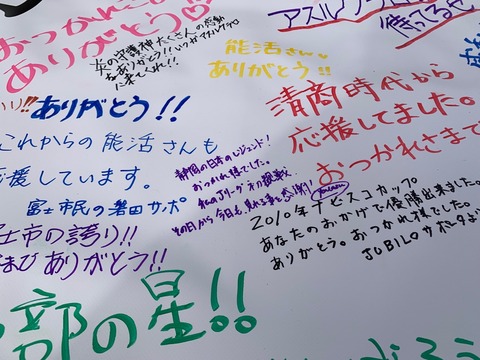 おつかれさ
ありがとう♡
炎の守護神 たくさんの感動
をありがとう!! いつかアスルクラロ
に来てくれ!!
アスルクラロ
待ってるぜ
能活さん。
ありがとう!!
!!ありがとう!!
清商時代から
応援してました。
おつかれさまで
これからの能活さんも
応援しています。
富士市民の磐田サポ
静岡の日本のレジェンド!
おつかれ様でした。
私のJリーグ初観戦
その日から今日も
感謝!
士市の誇り!!
ありがとう!!
2010年ナビスコカップ
あなたのおかげで優勝出来ました。
ありがとう。おつかれ様でした。
JUBILOサポータより
部の星!!